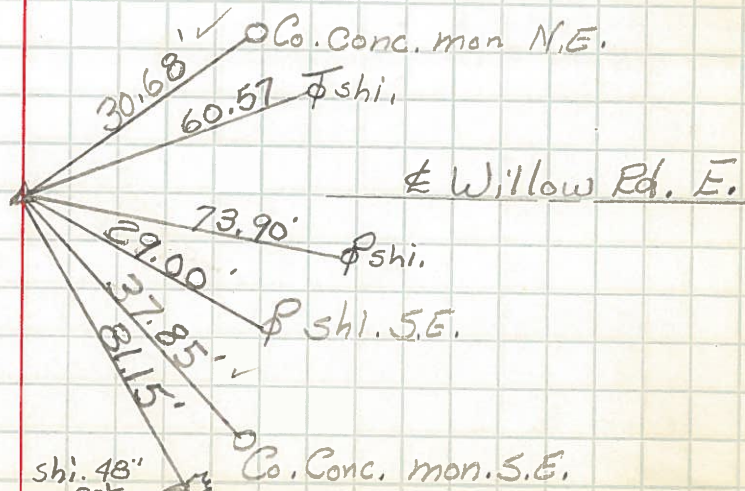 30.68' ✓ Co. Conc. mon N.E.
60.57 shi.
℄ Willow Rd. E.
73.90' shi.
29.00' shi. S.E.
37.85' ✓
81.15'
Co. Conc. mon. S.E.
shi. 48"